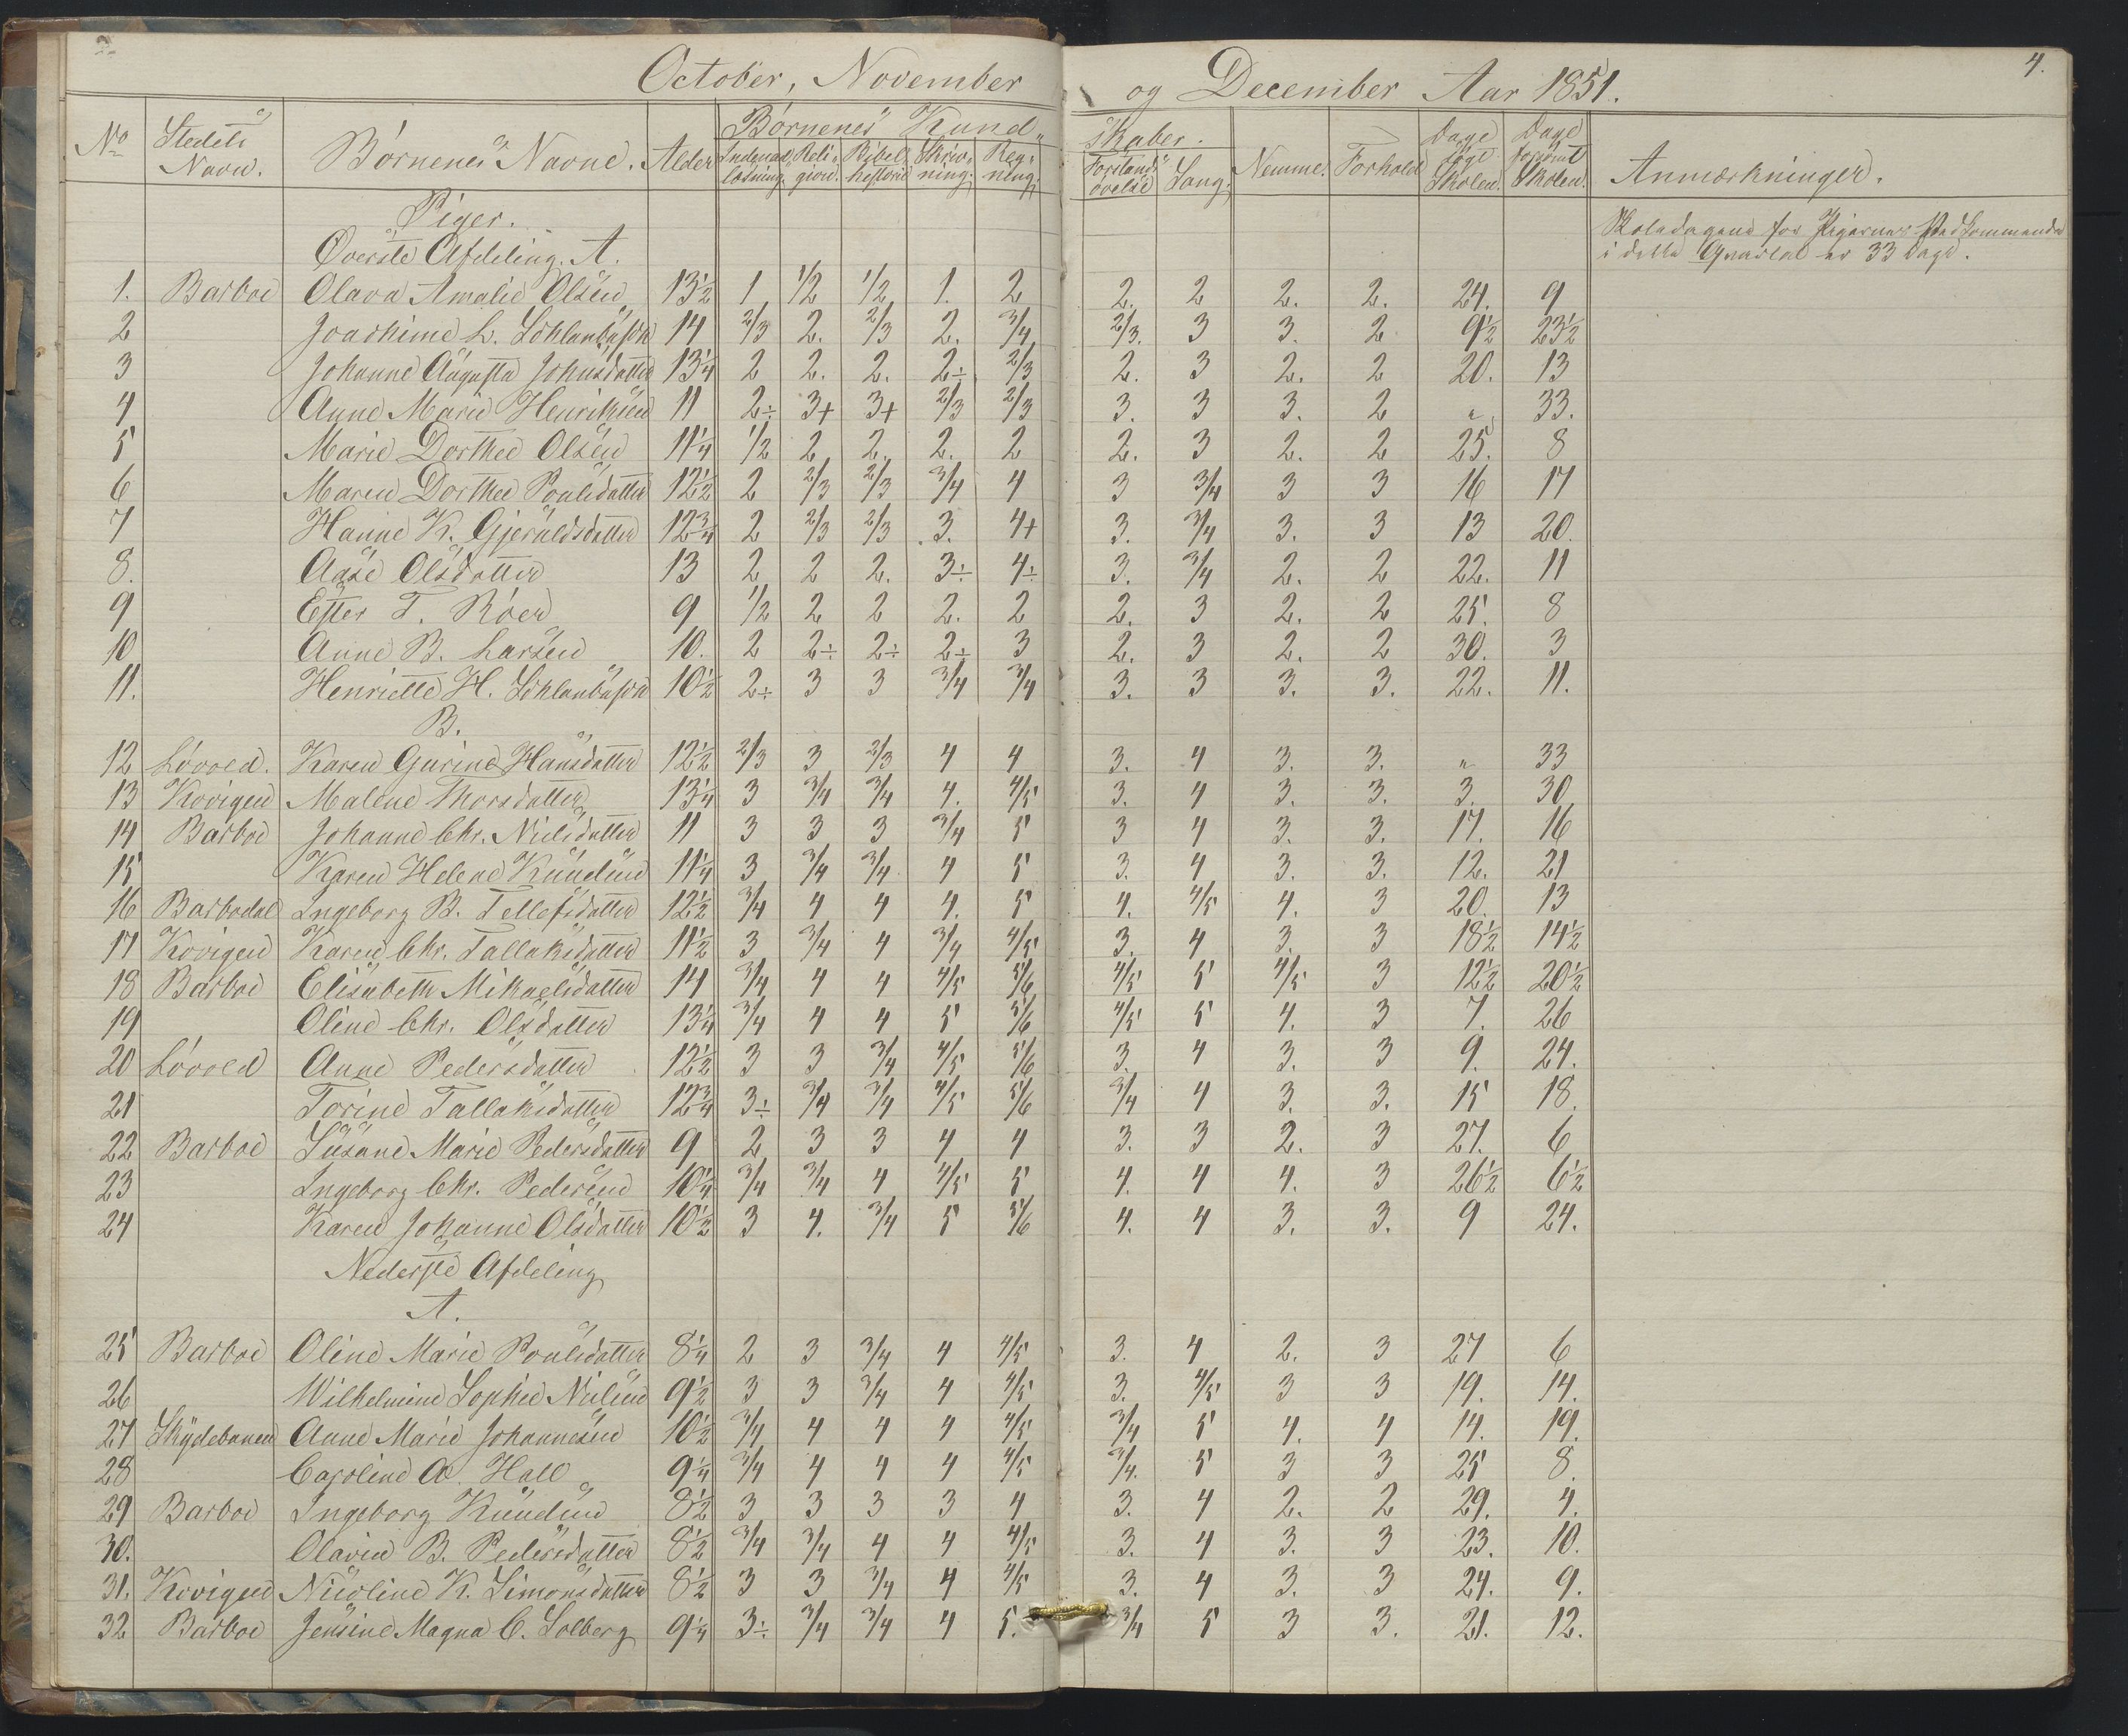 October, November og December Aar 1851. 4.
No Stedets Navn. Børnenes Navne. Alder Børnenes Kund- skaber. Nemme. Forhold Dage søgt Skolen. Dage forsømt Skolen. Anmærkninger.
Indenadlæsning. Religion. Bibelhistorie Skrivning. Regning. Forstandsøvelse Sang.
Piger.
Øverste Afdeling. A.
Skoledagene for Pigernes Vedkommende
i dette Qvartal er 33 Dage.
1. Barboe Olava Amalie Olsen 13½ 1 1/2 1/2 1. 2 2. 2 2. 2. 24. 9
2 Joachime L. 14 2/3 2. 2/3 2. 3/4 2/3. 3 3. 2 9½ 23½
3 Johanne Augusta Johnsdatter 13¼ 2 2. 2. 2÷ 2/3 2. 3 2. 2 20. 13
4 Anne Marie Henriksen 11 2÷ 3+ 3+ 2/3 2/3 3. 3 3. 2 " 33.
5 Marie Dorthee Olsen 11¼ 1/2 2 2. 2. 2 2. 3 2. 2 25. 8
6 Maren Dorthee Poulsdatter 12½ 2 2/3 2/3 3/4 4 3 3/4 3 3 16 17
7 Hanne K. Gjeruldsdatter 12¾ 2 2/3 2/3 3. 4+ 3. 3/4 3. 3 13 20.
8. Aase Olsdatter 13 2 2 2. 3÷ 4÷ 3. 3/4 2. 2 22. 11
9 Ester T. Röer 9 1/2 2 2 2. 2 2. 3 2. 2 25. 8
10 Anne B. Larsen 10. 2 2÷ 2÷ 2÷ 3 2. 3 2. 2 30. 3
11. Henriette H. 10½ 2÷ 3 3 3/4 3/4 3. 3 3. 3. 22. 11.
B.
12 Løvold. Karen Gurine Hansdatter 12½ 2/3 3 2/3 4 4 3. 4 3. 3. " 33
13 Kovigen Malene Thorsdatter 13¼ 3 3/4 3/4 4. 4/5 3. 4 3. 3. 3. 30
14 Barboe Johanne Chr. Nielsdatter 11 3 3 3 3/4 5 3 4 3. 3. 17. 16
15 Karen Helene Knudsen 11¼ 3 3/4 3/4 4 5 3. 4 3. 3. 12. 21
16 Barbodal Ingeborg B. Tellefsdatter 12½ 3/4 4 4 4. 5 4. 4/5 4. 3 20. 13
17 Kovigen Karen Chr. Tallaksdatter 11½ 3 3/4 4 3/4 4/5 3. 4 3. 3 18½ 14½
18 Barboe Elisabeth Mikaelsdatter 14 3/4 4 4 4/5 5/6 4/5 5 4/5 3 12½ 20½
19 Oline Chr. Olsdatter 13¼ 3/4 4 4 5 5/6 4/5 5 4. 3 7. 26
20 Løvold Anne Pedersdatter 12½ 3 3 3/4 4/5 5/6 3. 4 3. 3 9. 24.
21 Torine Tallaksdatter 12¾ 3÷ 3/4 3/4 4/5 5/6 3/4 4 3. 3. 15 18.
22 Barboe Susane Marie Pedersdatter 9 2 3 3 4 4 3. 3 2. 3 27. 6
23 Ingeborg Chr. Pedersen 10¼ 3/4 3/4 4 4/5 5 4. 4 4. 3 26½ 6½
24 Karen Johanne Olsdatter 10½ 3 4. 3/4 5 5/6 4. 4 3. 3. 9 24.
Nederste Afdeling
A.
25 Barboe Oline Marie Poulsdatter 8¼ 2 3 3/4 4 4/5 3. 4 2. 3 27 6
26 Wilhelmine Sophie Nielsen 9½ 3 3 3/4 4 4/5 3. 4/5 3 3 19. 14.
27 Skydebanen Anne Marie Johannesen 10½ 3/4 4 4 4 4/5 3/4 5 4. 4 14. 19.
28 Caroline A. Hall 9¼ 3/4 4 4 4 4/5 3/4. 5 3 3 25 8.
29 Barboe Ingeborg Knudsen 8½ 3 3 3 3 4 3. 4 2. 2 29. 4.
30. Olavie B. Pedersdatter 8½ 3/4 3/4 4 4 4/5 3. 4 3. 3 23. 10.
31. Kovigen Nicoline K. Simonsdatter 8½ 3 3 3/4 4 4/5 3. 4 3. 3 24. 9.
32 Barboe Jensine Magna C. Solberg 9¼ 3÷ 3/4 3/4 4 5. 3/4 5 3 3. 21. 12.